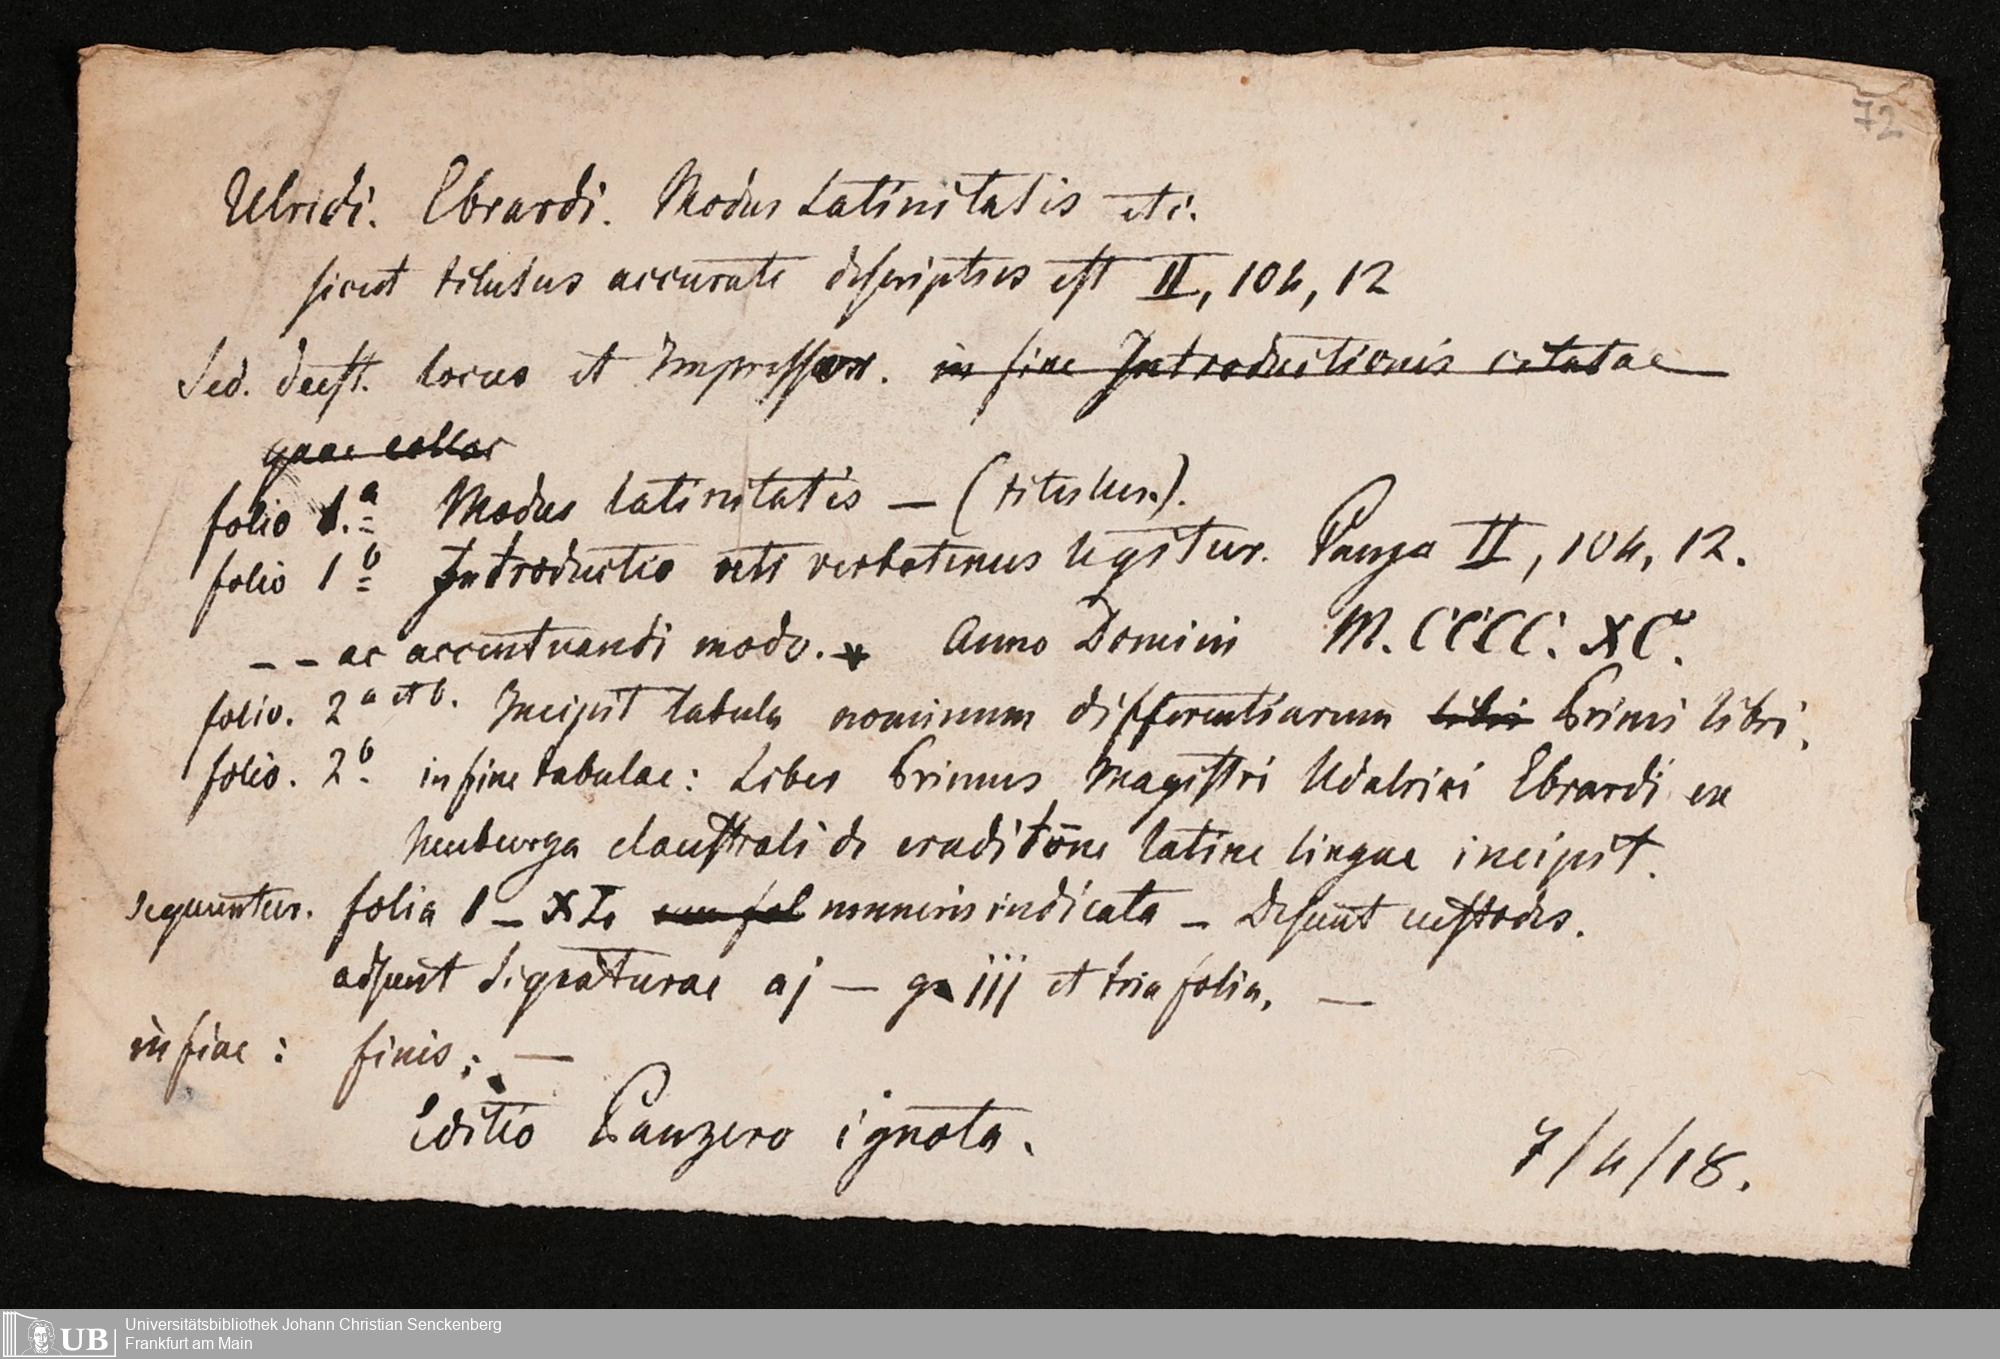 72
Ulrici. Ebrardi. Modus Latinitatis etc.
sicut titulus accurate descriptus est II, 104, 12
Sed. deest. locus et Impressor. in fine Introductionis citatae
quae
folio 1.a Modus latinitatis — (titulus.).
folio 1b Introductio verbotenus legitur. Panza II, 104, 12.
– – ac accentuandi modo. Anno Domini M. CCCC. XC.
folio. 2 a et b. Incipit tabula nominum differentiarum libri Primi libri.
folio. 2b. in fine tabulae: Liber Primus Magistri Udalrici Ebrardi ex
Neuburga claustrali de eruditōne latine lingue incipit.
sequuntur. folia 1 – XL cum fol numeris indicata – Desunt custodes.
adsunt Signaturae aj — g iij et tria folia. —
in fine: finis. —
Editio Panzero ignota.
7/4/18.
UB Universitätsbibliothek Johann Christian Senckenberg
Frankfurt am Main